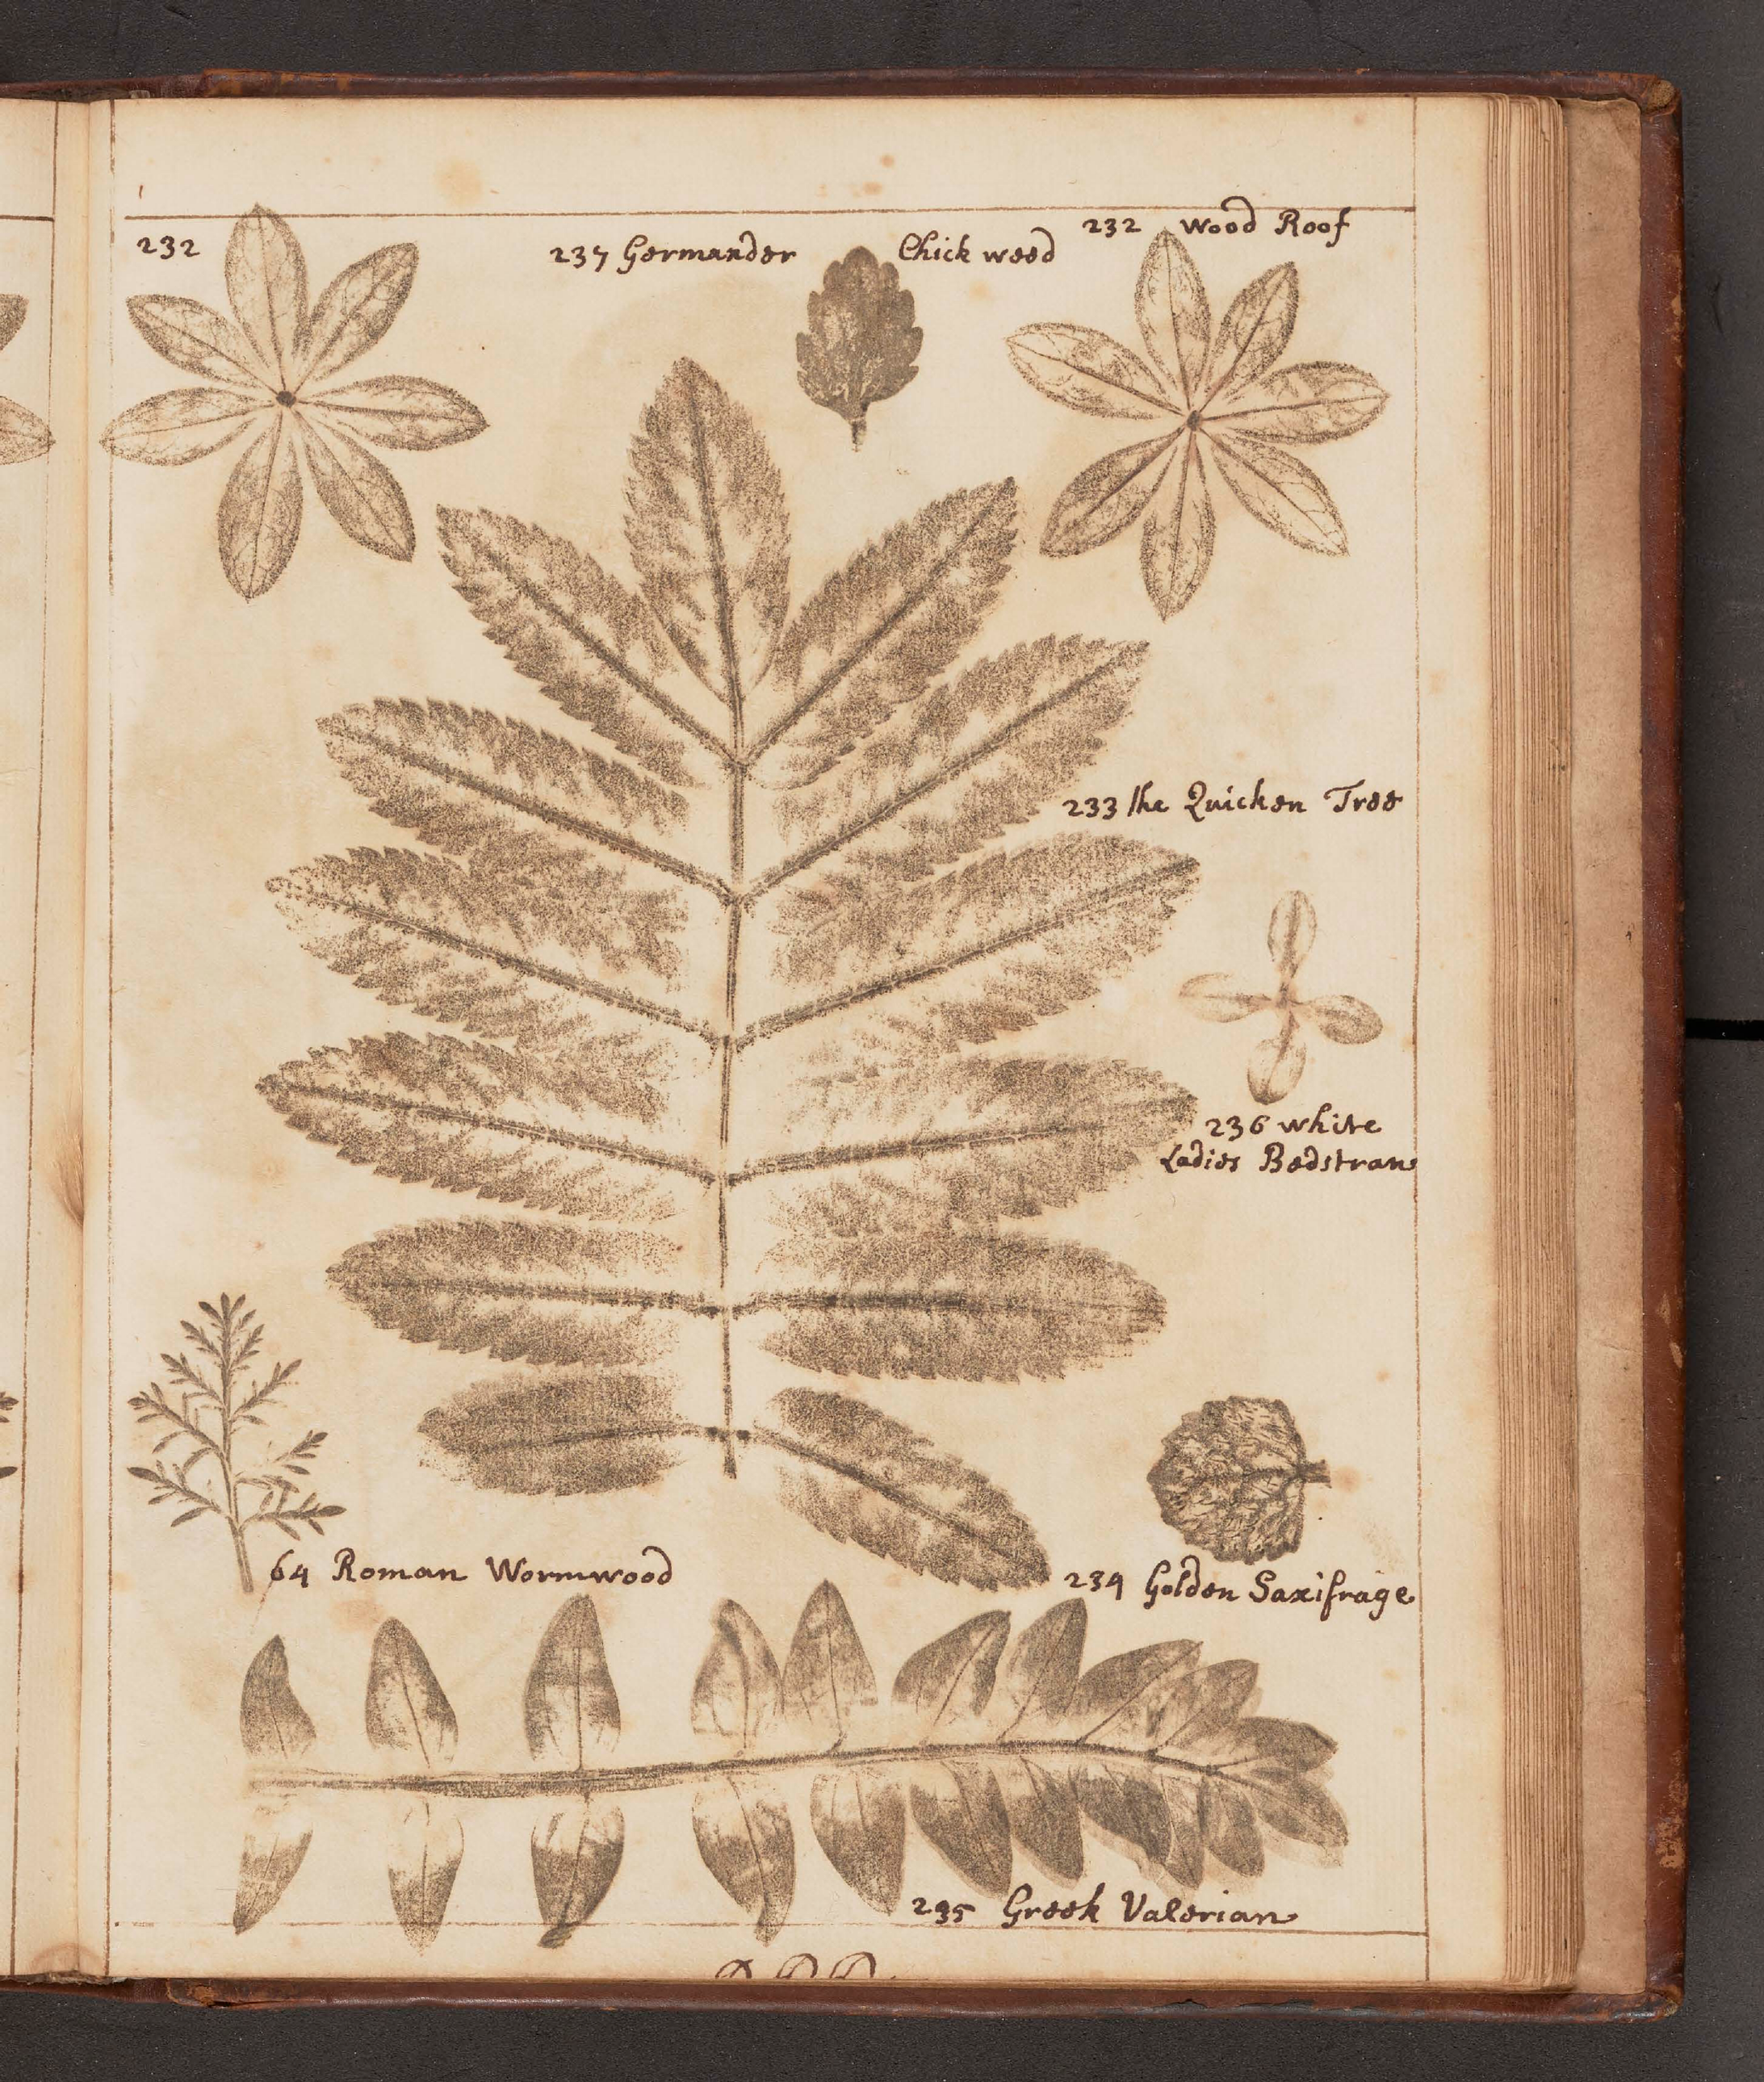 232
237 Germander Chick weed
232 Wood Roof
233 the Quicken Tree
236 white
Ladies Bedstraw
64 Roman Wormwood
234 Golden Saxifrage
235 Greek Valerian